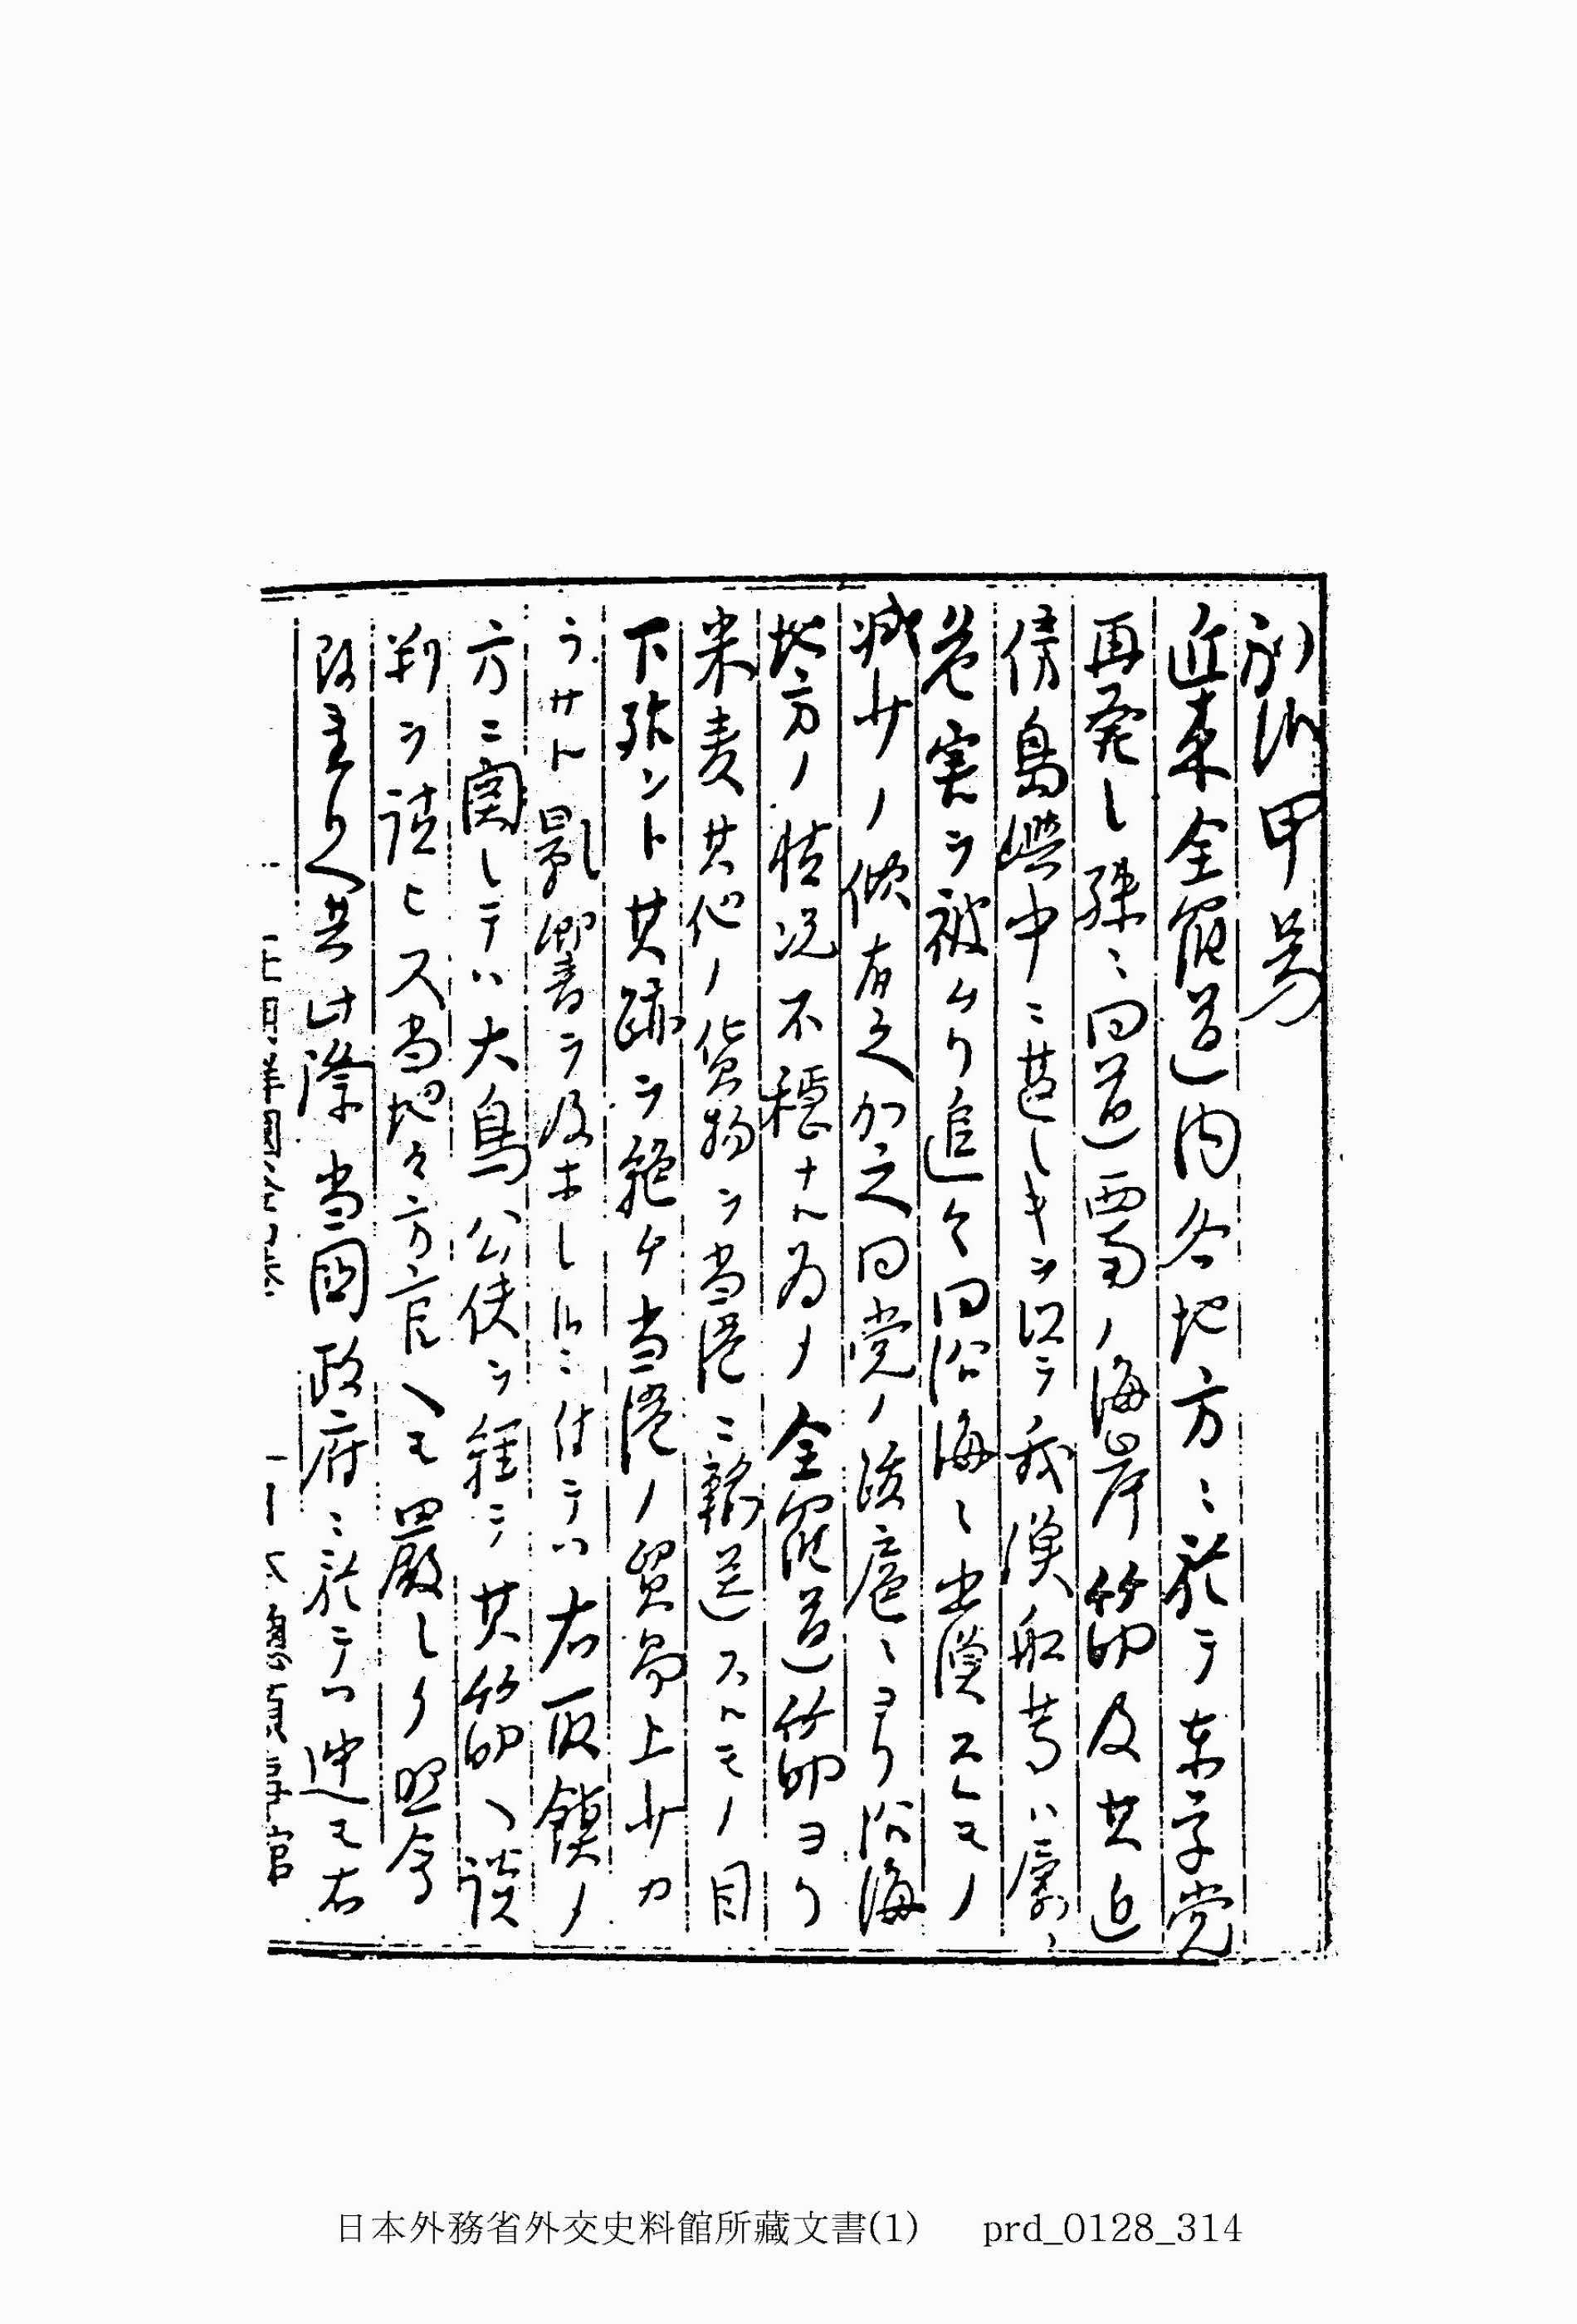 別紙甲号
近来全羅道内各地方ニ於テ東学党
再発シ殊ニ同道西南ノ海岸筋及其近
傍島嶼中ニ甚シキヲ以テ我漁船等ハ屡々
危害ヲ被ムリ追々同沿海ニ出漁スルモノ
減少ノ傾有之加之同党ノ跋扈ニヨリ沿海
地方ノ情況不穏ナル為メ全羅道筋ヨリ
米麦其他ノ貨物ヲ当港ニ輸送スルモノ目
下殆ント其跡ヲ絶ケ当港ノ貿易上少カ
ラサル影響ヲ及ホシ候ニ付テハ右取鎮メ
方ニ関シテハ大鳥公使ヲ経テ其筋ヘ談
判ヲ請ヒ又当地々方官ヘモ厳シク照会
致置候共此際当国政府ニ於テ速モ右
在朝鮮国釜山港
日本総領事館
日本外務省外交史料館所藏文書(1) prd_0128_314